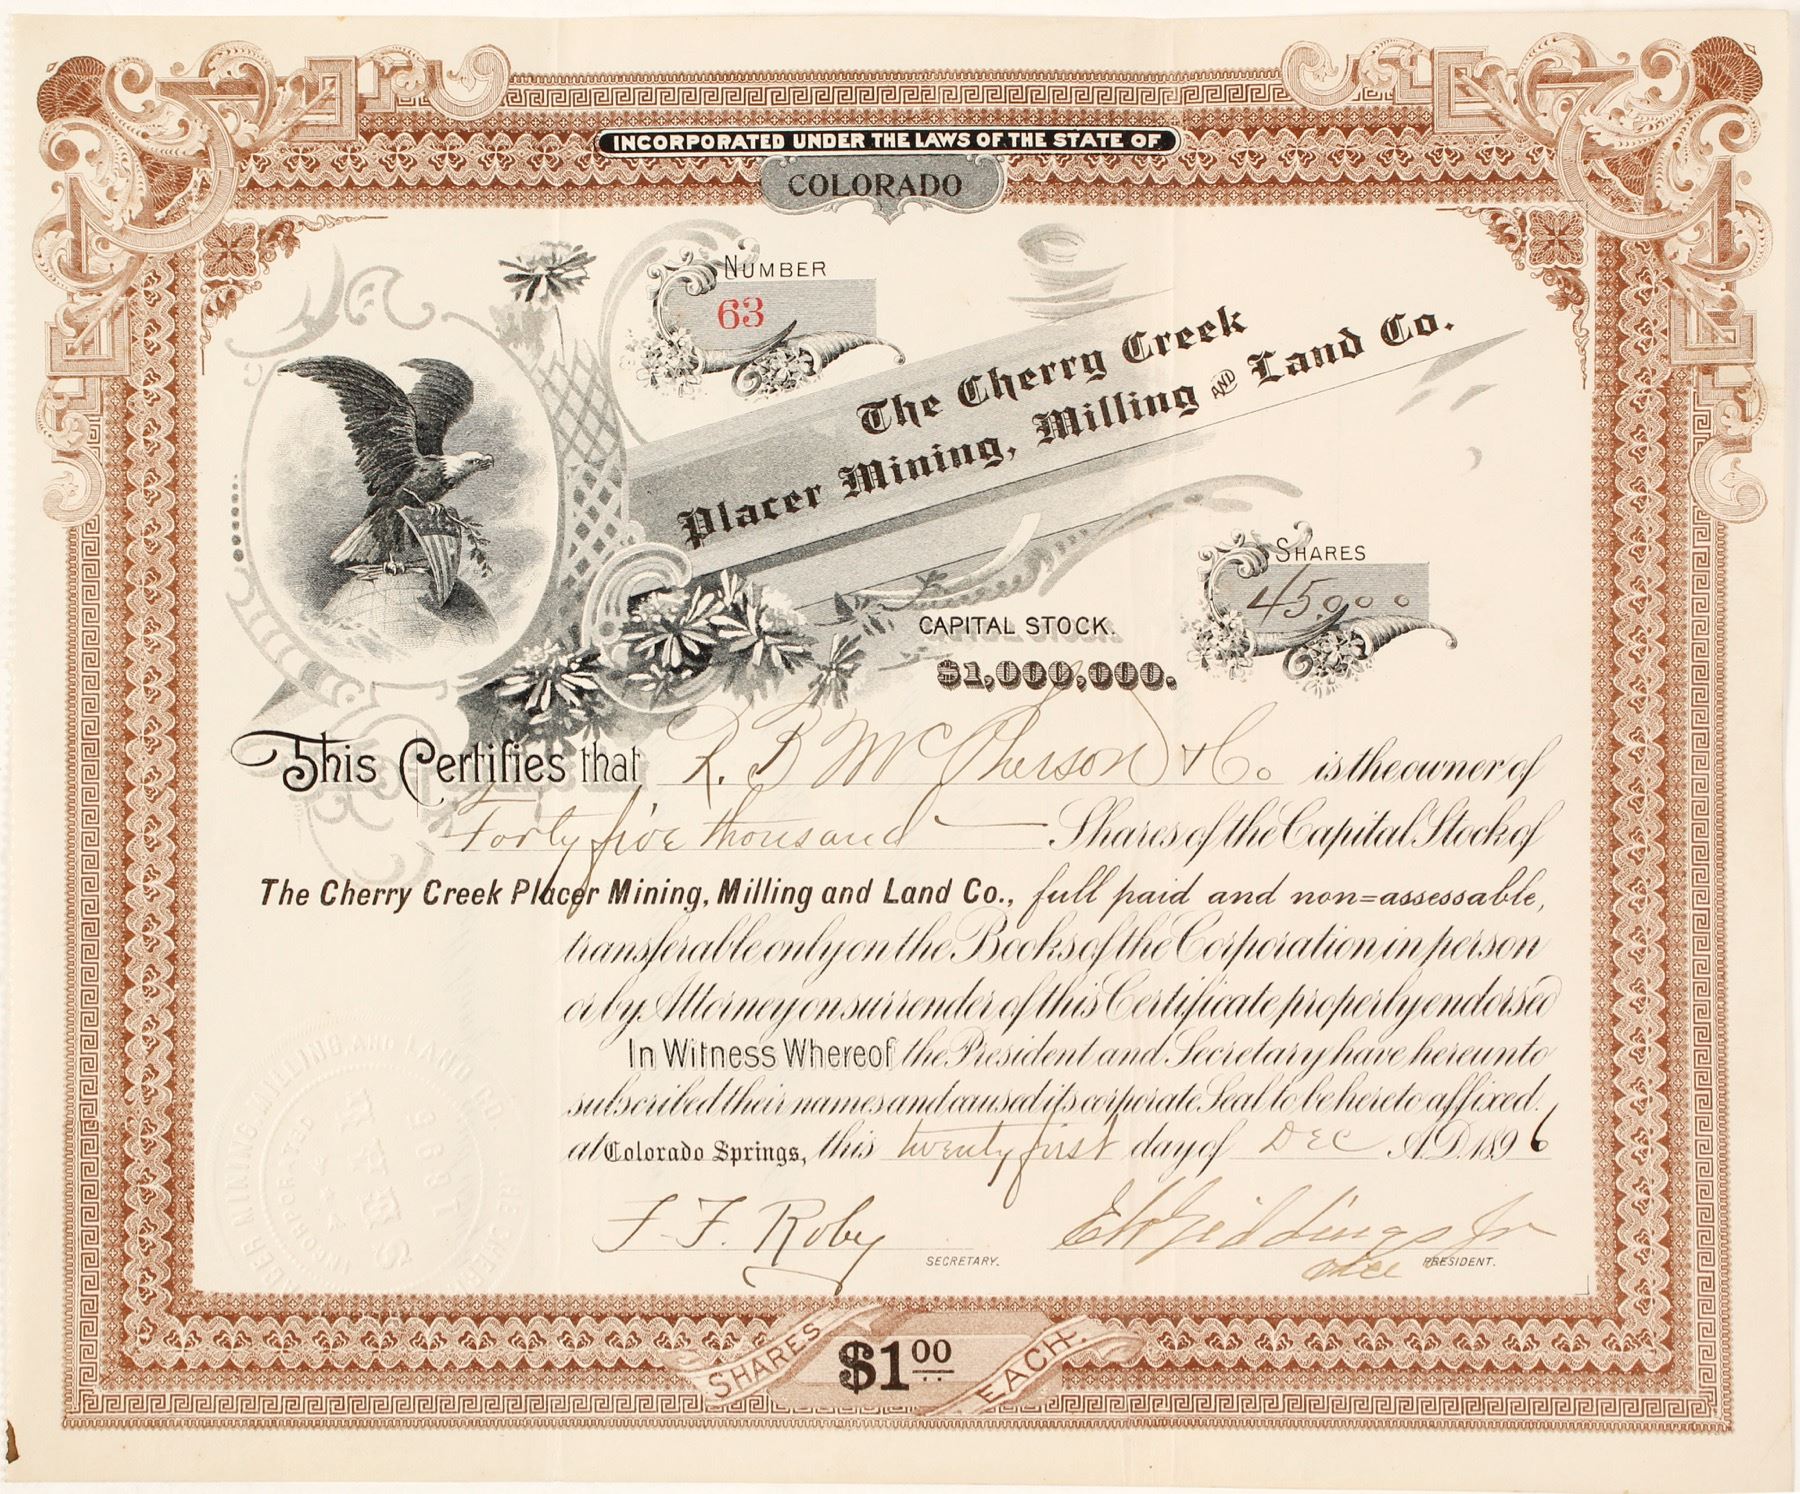 INCORPORATED UNDER THE LAWS OF THE STATE OF
COLORADO
NUMBER
63
The Cherry Creek
Placer Mining, Milling AND Land Co.
SHARES
45,000
CAPITAL STOCK.
$1,000,000.
This Certifies that R. B McPherson & Co is the owner of
Forty five thousand — Shares of the Capital Stock of
The Cherry Creek Placer Mining, Milling and Land Co., full paid and non=assessable,
transferable only on the Books of the Corporation in person
or by Attorney on surrender of this Certificate properly endorsed
In Witness Whereof the President and Secretary have hereunto
subscribed their names and caused its corporate Seal to be hereto affixed.
at Colorado Springs, this twenty first day of Dec A.D. 1896
F. F. Roby
SECRETARY.
E W Giddings Jr
vice PRESIDENT.
MINING, MILLING AND LAND CO.
INCORPORATED
1895
SHARES $1 00 EACH.